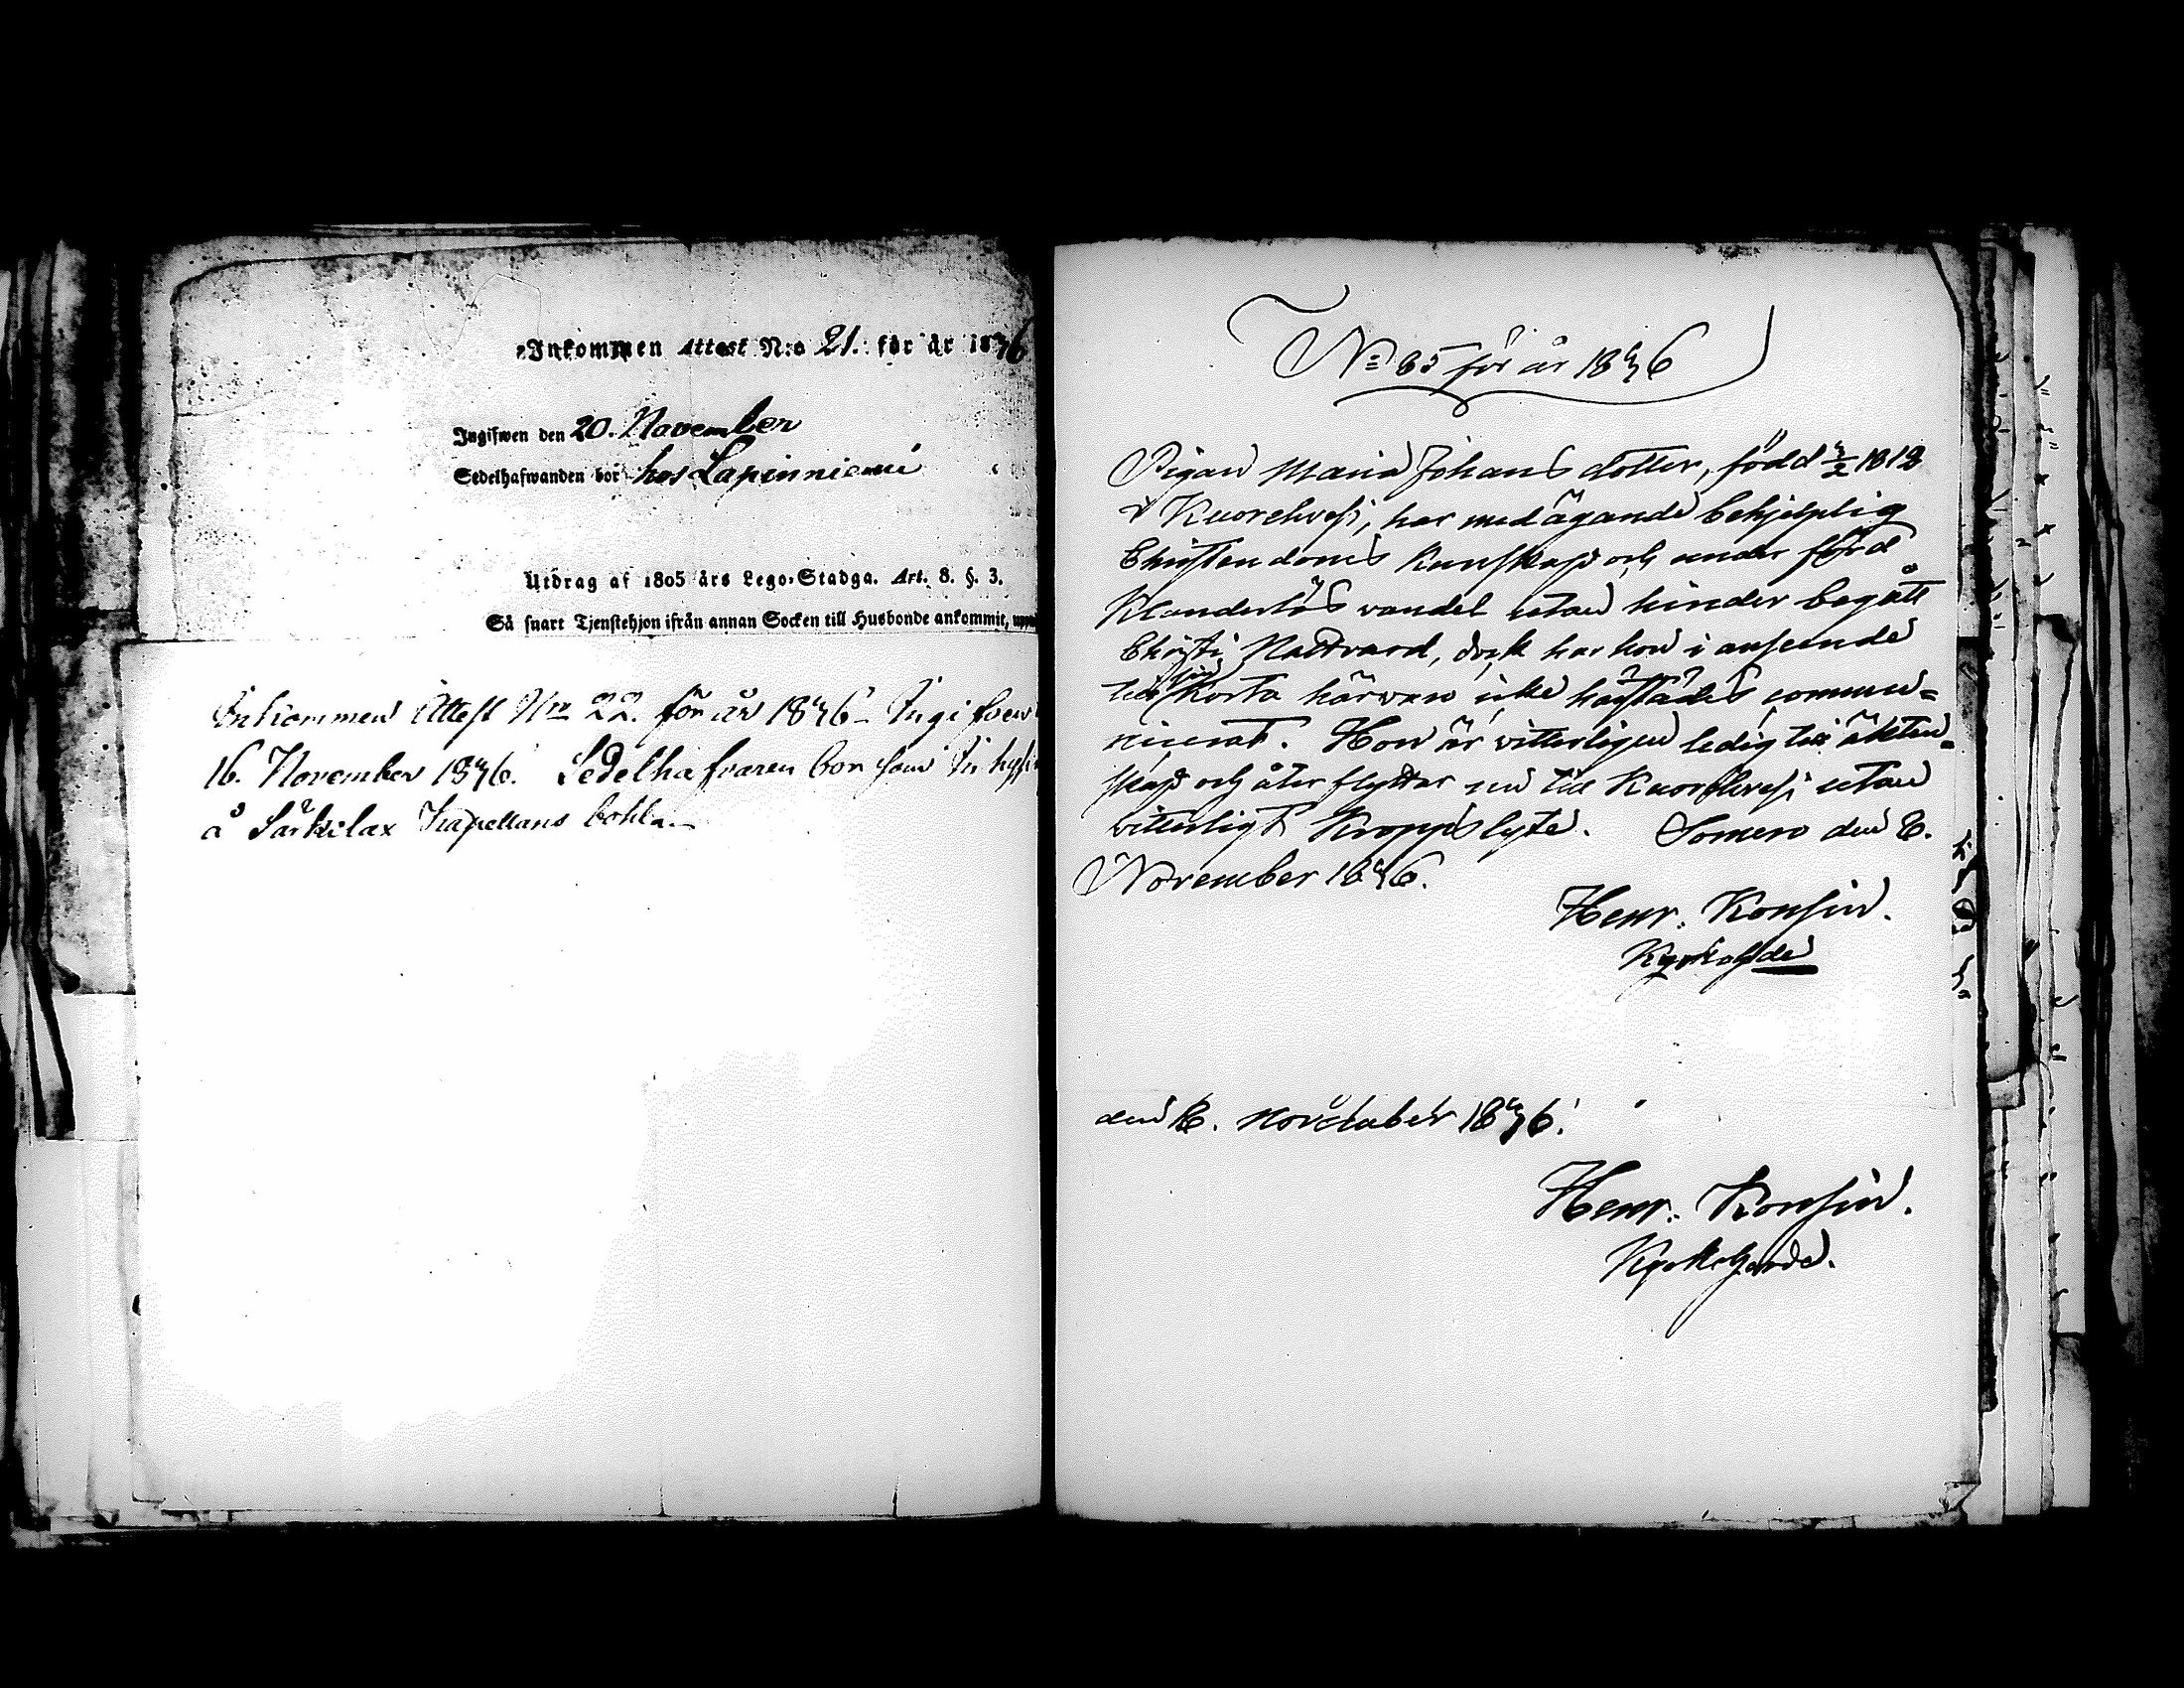 Inkommen Attest N:o 21. för år 1846
Ingifwen den 20. November
Sedelhafwanden bor hos Lapinniemi
Utdrag af 1805 års Lego-Stadga. Art. 8. §. 3.
Så snart Tjenstehjon ifrån annan Socken till Husbonde ankommit,
Inkommen Attest No 22. för år 1846. Ingifven
16. November 1846. Sedelhafvaren bor som In hysi
å Särkilax Kapellans bohl
No 85 för år 1846
Pigan Maria Johans dotter, född 4/2 1818
i Kuorehvesi, har med ägande behjelplig
Christendoms Kunskap och under förd
Klanderlös vandel utan hinder begått
Christi Nattvard, dock har hon i anseende
till sin korta härvaro icke härstädes commu=
nicerat. Hon är vitterligen ledig till äkten=
skap och åter flyttar nu till Kuorehvesi utan
vitterligt Kropps lyte. Somero den 6.
November 1846.
Henr. Konsin.
Kyrkohde
den 6. November 1846.
Henr. Konsin.
Kyrkoherde.